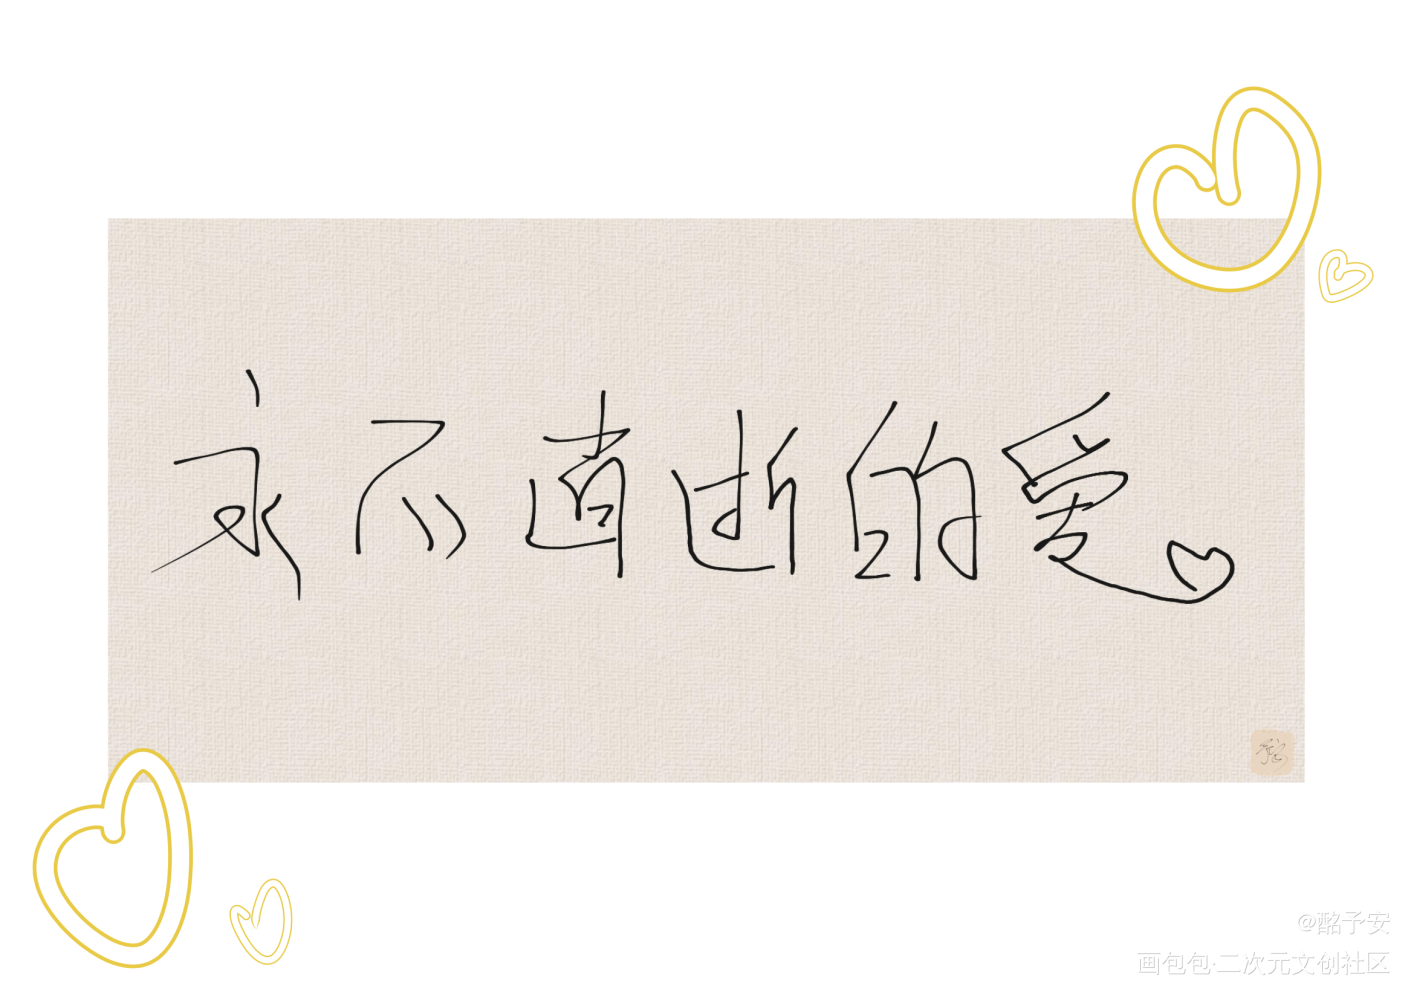 永不消逝的爱
@酩予安
画包包·二次元文创社区